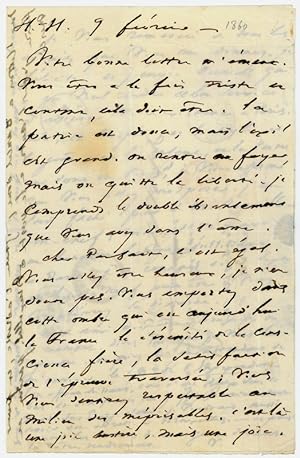 H. H. 9 février – 1860
Votre bonne lettre m'émeut.
Vous êtes à la fois triste et
content, cela doit être. la
patrie est douce, mais l'exil
est grand. on rentre au foyer,
mais on quitte la liberté. je
comprends le double ébranlement
que vous avez dans l'âme.
cher c'est égal.
Vous allez être heureux, je n'en
doute pas. Vous emportez dans
cette ombre qui est aujourd'hui
la France la sérénité de la cons-
cience fière, la satisfaction
de l'épreuve traversée; Vous
Vous sentirez respectable au
milieu des méprisables. c'est là
une joie austère, mais une joie.